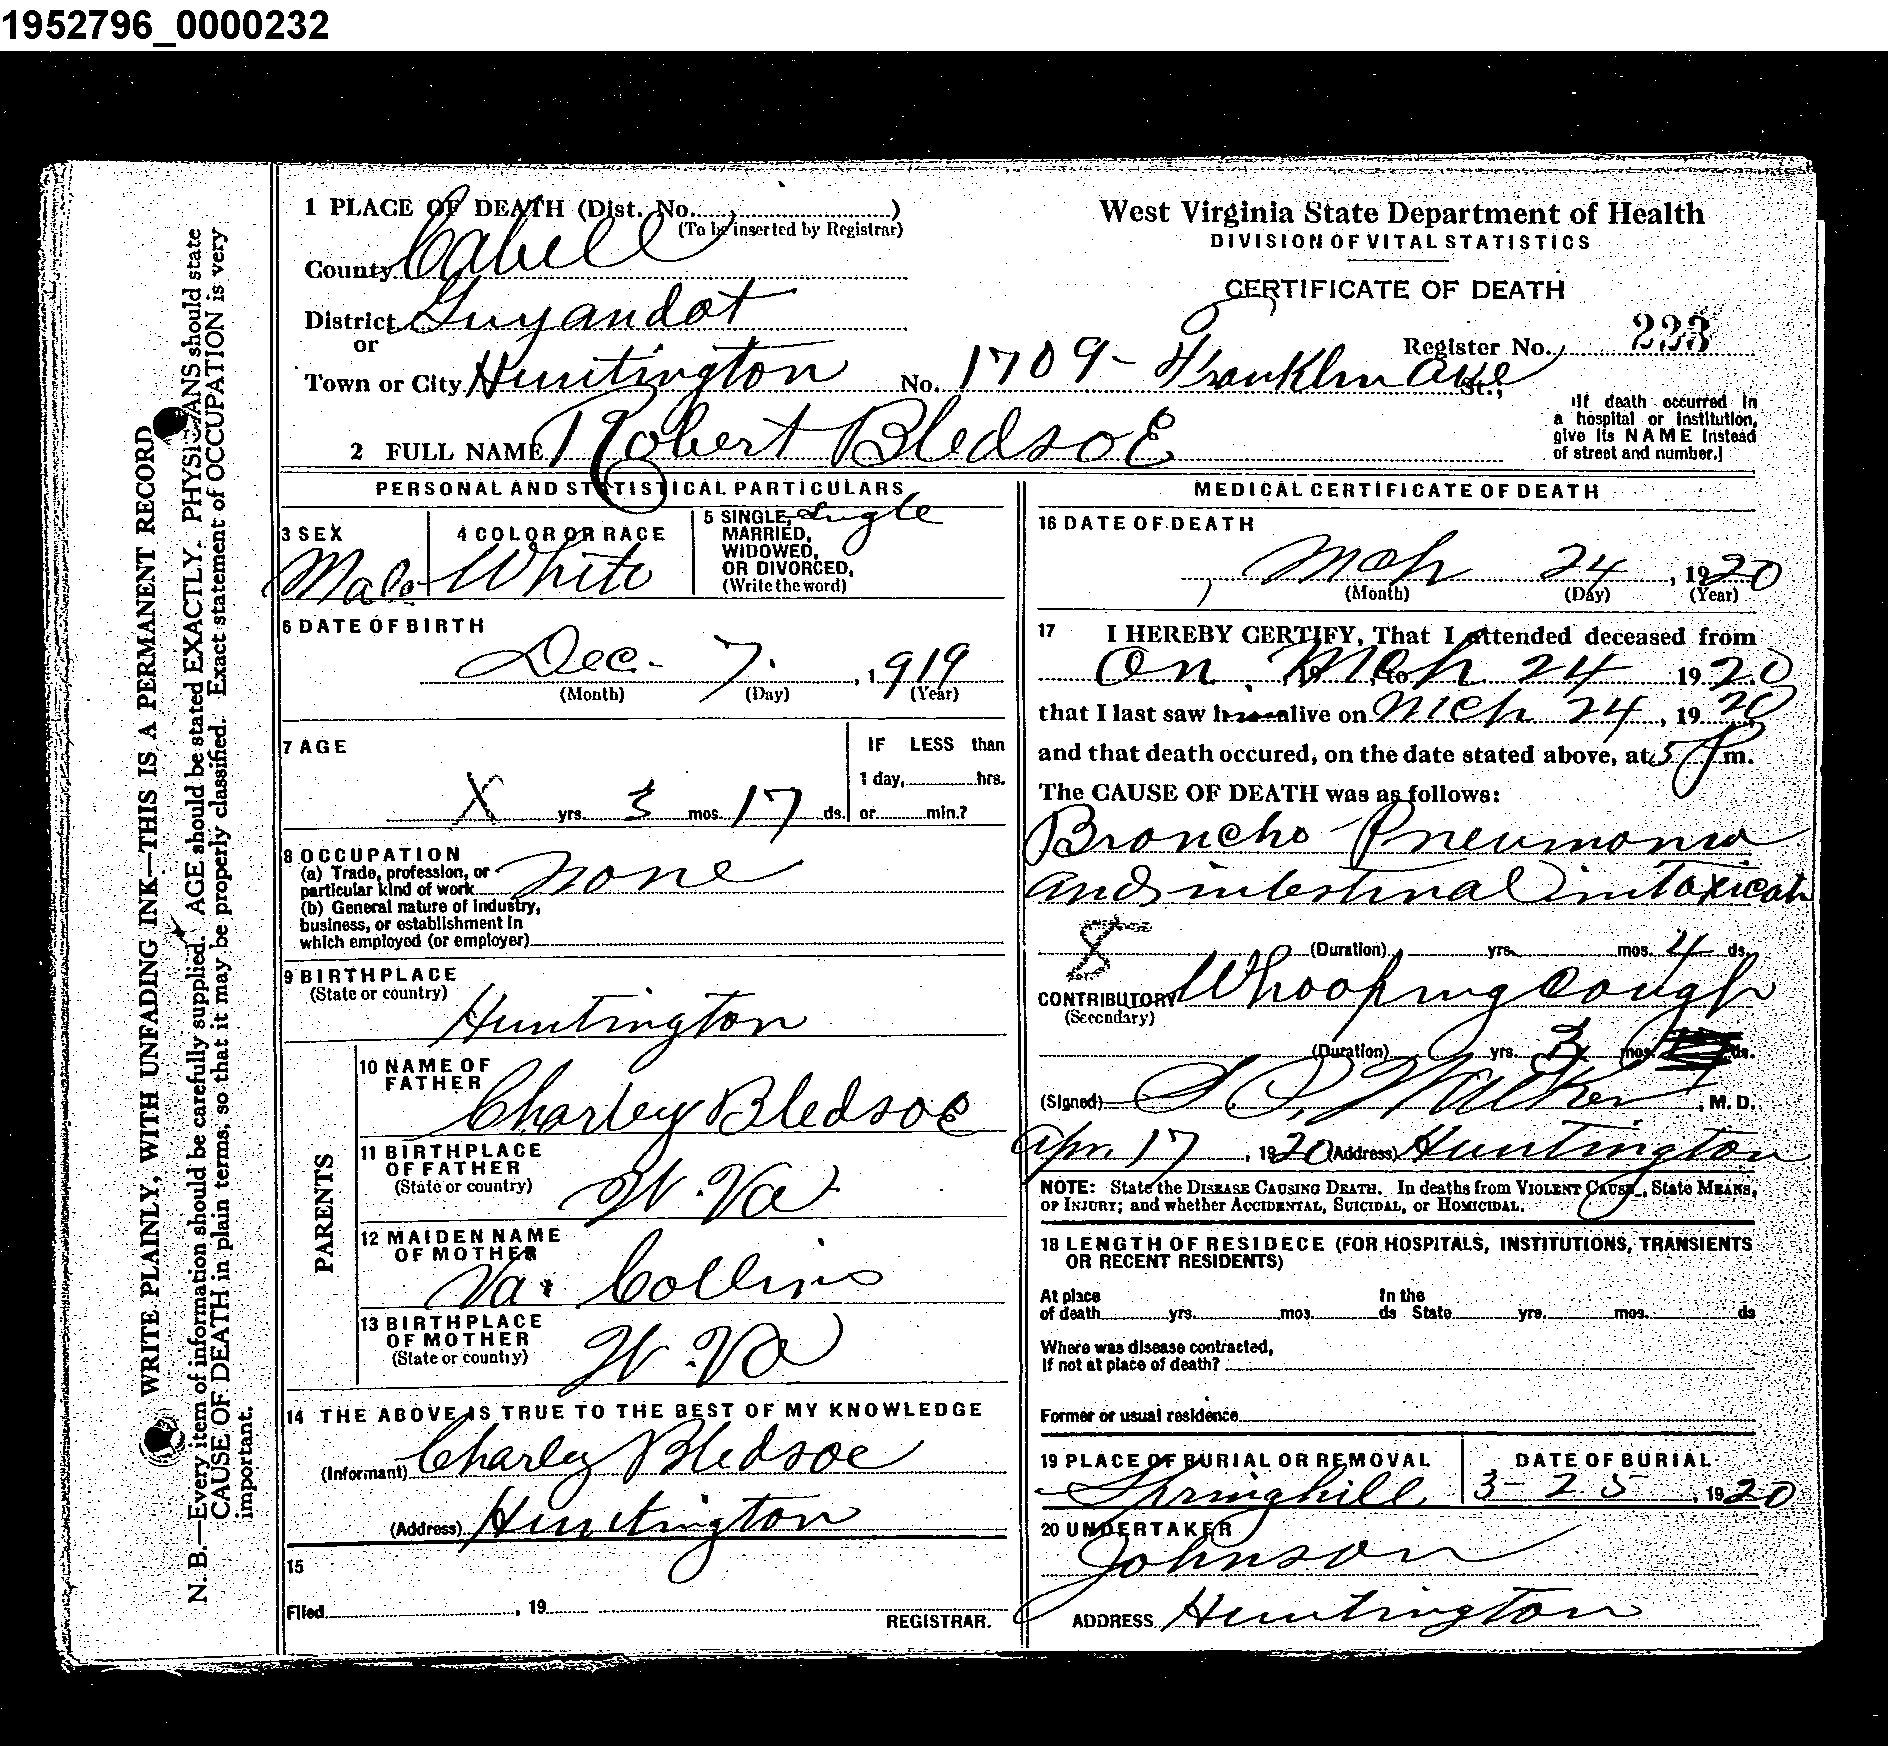 1952796_0000232
WRITE PLAINLY, WITH UNFADING INK—THIS IS A PERMANENT RECORD
N. B.—Every item of information should be carefully supplied. AGE should be stated EXACTLY. PHYSICIANS should state
CAUSE OF DEATH in plain terms, so that it may be properly classified. Exact statement of OCCUPATION is very
important.
1 PLACE OF DEATH (Dist. No. )
(To be inserted by Registrar)
County Cabell
District Guyandot
or
Town or City Huntington No. 1709 - Franklin Ave St.,
West Virginia State Department of Health
DIVISION OF VITAL STATISTICS
CERTIFICATE OF DEATH
Register No. 233
[If death occurred in
a hospital or institution,
give its NAME instead
of street and number.]
2 FULL NAME Robert Bledsoe
PERSONAL AND STATISTICAL PARTICULARS
3 SEX
Male
4 COLOR OR RACE
White
5 SINGLE, Single
MARRIED,
WIDOWED,
OR DIVORCED,
(Write the word)
6 DATE OF BIRTH
Dec. 7. , 1919
(Month) (Day) (Year)
7 AGE
X yrs. 3 mos. 17 ds.
IF LESS than
1 day, hrs.
or min.?
8 OCCUPATION
(a) Trade, profession, or
particular kind of work none
(b) General nature of industry,
business, or establishment in
which employed (or employer)
9 BIRTHPLACE
(State or country)
Huntington
PARENTS
10 NAME OF
FATHER
Charley Bledsoe
11 BIRTHPLACE
OF FATHER
(State or country)
W. Va
12 MAIDEN NAME
OF MOTHER
Va. Collins
13 BIRTHPLACE
OF MOTHER
(State or country)
W. Va
14 THE ABOVE IS TRUE TO THE BEST OF MY KNOWLEDGE
(Informant) Charley Bledsoe
(Address) Huntington
15
Filed , 19
REGISTRAR.
MEDICAL CERTIFICATE OF DEATH
16 DATE OF DEATH
Mch 24 , 1920
(Month) (Day) (Year)
17 I HEREBY CERTIFY, That I attended deceased from
On Mch 24 1920
that I last saw h alive on Mch 24 , 1920
and that death occured, on the date stated above, at 5 P m.
The CAUSE OF DEATH was as follows:
Broncho-Pneumonia
and intestinal intoxicatn
8
(Duration) yrs. mos. 4 ds.
CONTRIBUTORY Whooping Cough
(Secondary)
(Duration) yrs. mos. ds.
(Signed) Walker , M. D.
Apr. 17 , 1920 (Address) Huntington
NOTE: State the DISEASE CAUSING DEATH. In deaths from VIOLENT CAUSE, State MEANS,
OF INJURY; and whether ACCIDENTAL, SUICIDAL, or HOMICIDAL.
18 LENGTH OF RESIDECE (FOR HOSPITALS, INSTITUTIONS, TRANSIENTS
OR RECENT RESIDENTS)
At place In the
of death yrs. mos. ds State yrs. mos. ds
Where was disease contracted,
If not at place of death?
Former or usual residence
19 PLACE OF BURIAL OR REMOVAL
Springhill
DATE OF BURIAL
3-25 , 1920
20 UNDERTAKER
Johnson
ADDRESS Huntington